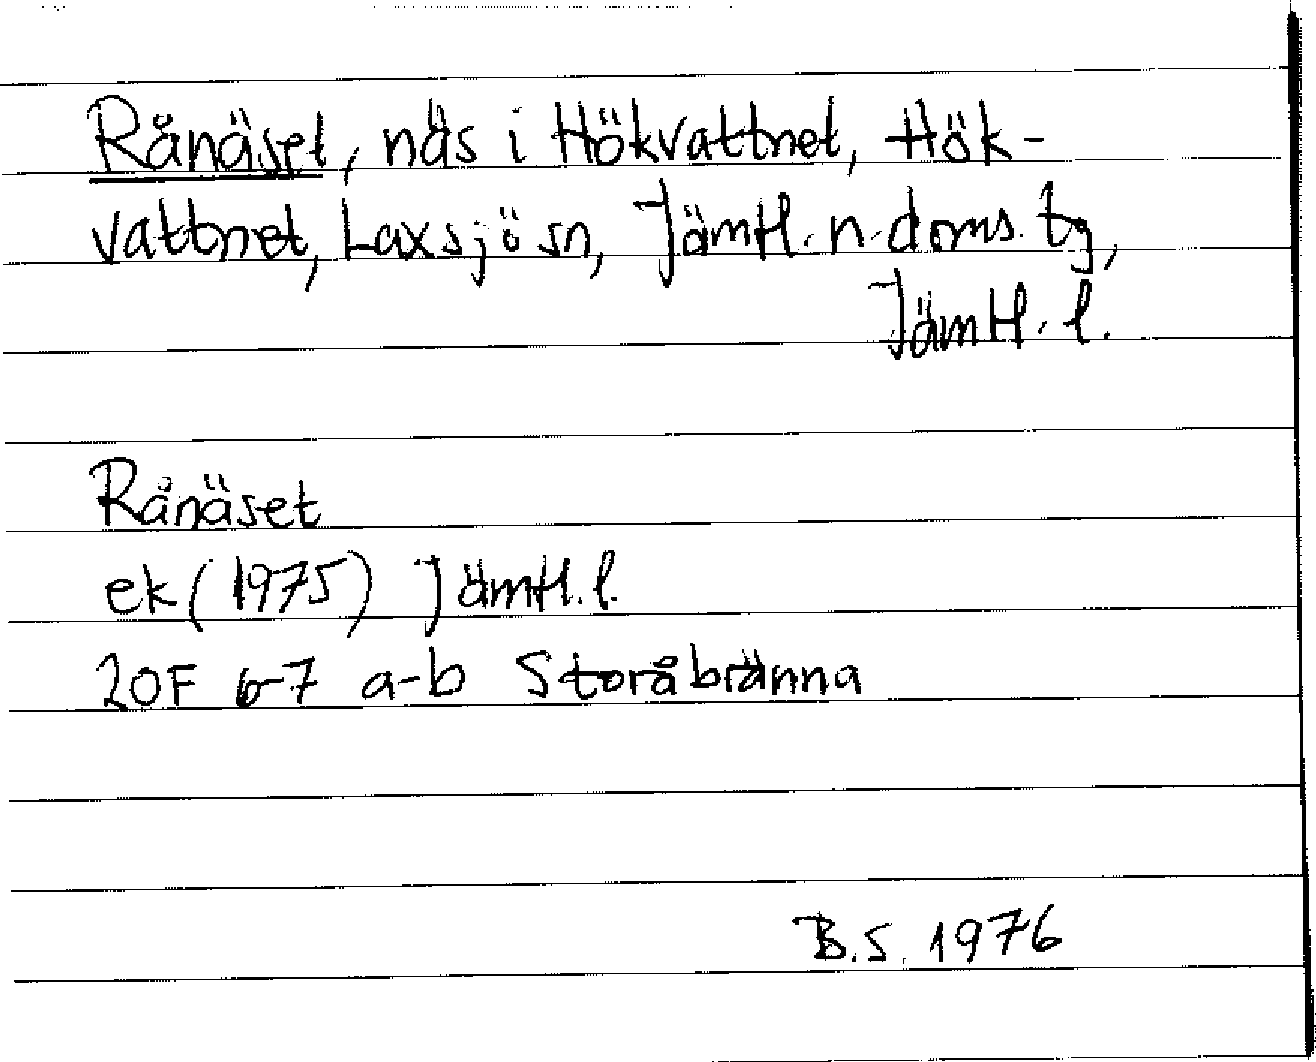 Rånäset, näs i Hökvattnet, Hök-
vattnet, Laxsjö sn, Jämtl. n. doms. tg,
Jämtl. l.
Rånäset
ek (1975) Jämtl. l.
20F 6-7 a-b Storåbränna
B.S. 1976